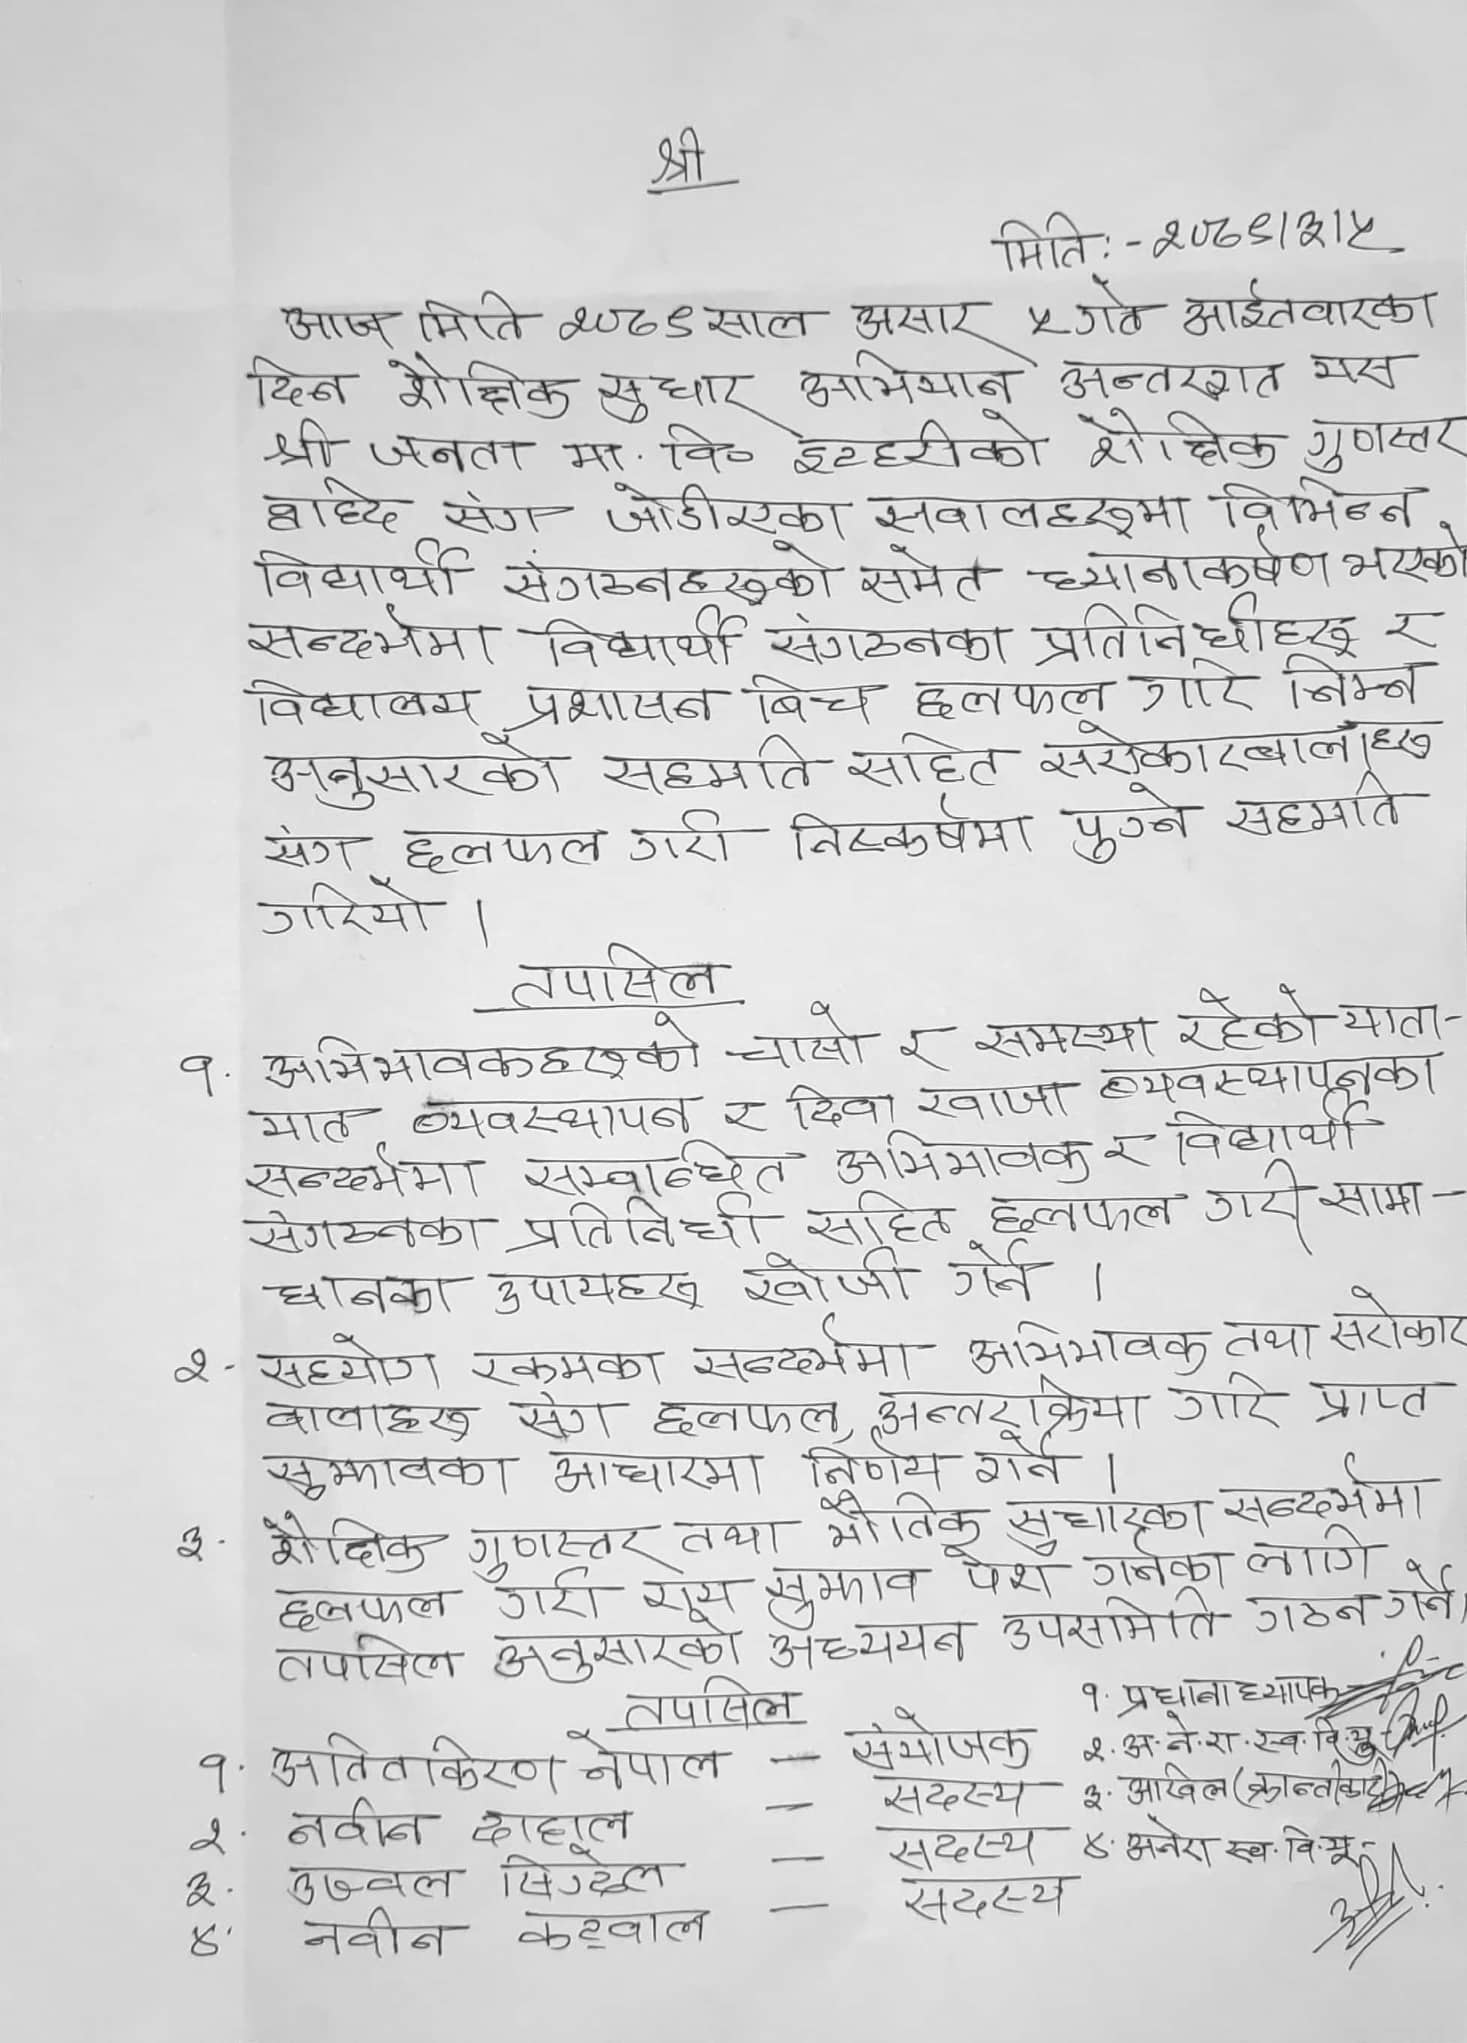 श्री
मिति:-२०७९।३।५
आज मिति २०७९ साल असार ५ गते आईतवारका
दिन शैक्षिक सुधार अभियान अन्तरगत यस
श्री जनता मा. वि० इटहरीको शैक्षिक गुणस्तर
बृद्दि संग जोडीएका सवालहरूमा विभिन्न
विद्यार्थी संगठनहरूको समेत ध्यानाकर्षण भएको
सन्दर्भमा विद्यार्थी संगठनका प्रतिनिधीहरू र
विद्यालय प्रशासन बिच छलफल गरि निम्न
अनुसारको सहमति सहित सरोकारवालाहरु
संग छलफल गरी निस्कर्षमा पुग्ने सहमति
गरियो ।
तपासिल
१. अभिभावकहरूको चासो र समस्या रहेको याता-
यात व्यवस्थापन र दिवा खाजा व्यवस्थापनका
सन्दर्भमा सम्वान्धित अभिभावक र विद्यार्थी
संगठनका प्रतिनिधी सहित छलफल गरी सामा-
धानका उपायहरु खोजी गर्ने ।
२- सहयोग रकमका सन्दर्भमा अभिभावक तथा सरोकार
वालाहरु संग छलफल, अन्तरक्रिया गरि प्राप्त
सुझावका आधारमा निर्णय गर्ने ।
३. शैक्षिक गुणस्तर तथा भौतिक सुधारका सन्दर्भमा
छलफल गरी राय सुझाव पेश गर्नका लागि
तपासिल अनुसारको अध्ययन उपसमिति गठन गर्ने।
तपासिल
१. अतितकिरण नेपाल – संयोजक
२. नवीन दाहाल – सदस्य
३. उज्वल सिग्देल – सदस्य
४. नवीन कट्वाल – सदस्य
१. प्रधानाध्यापक
२. अ.ने.रा.स्व.वि.यु-
३. आखिल (क्रान्तीकारी)
४. अनेरा स्व.वि.यू-